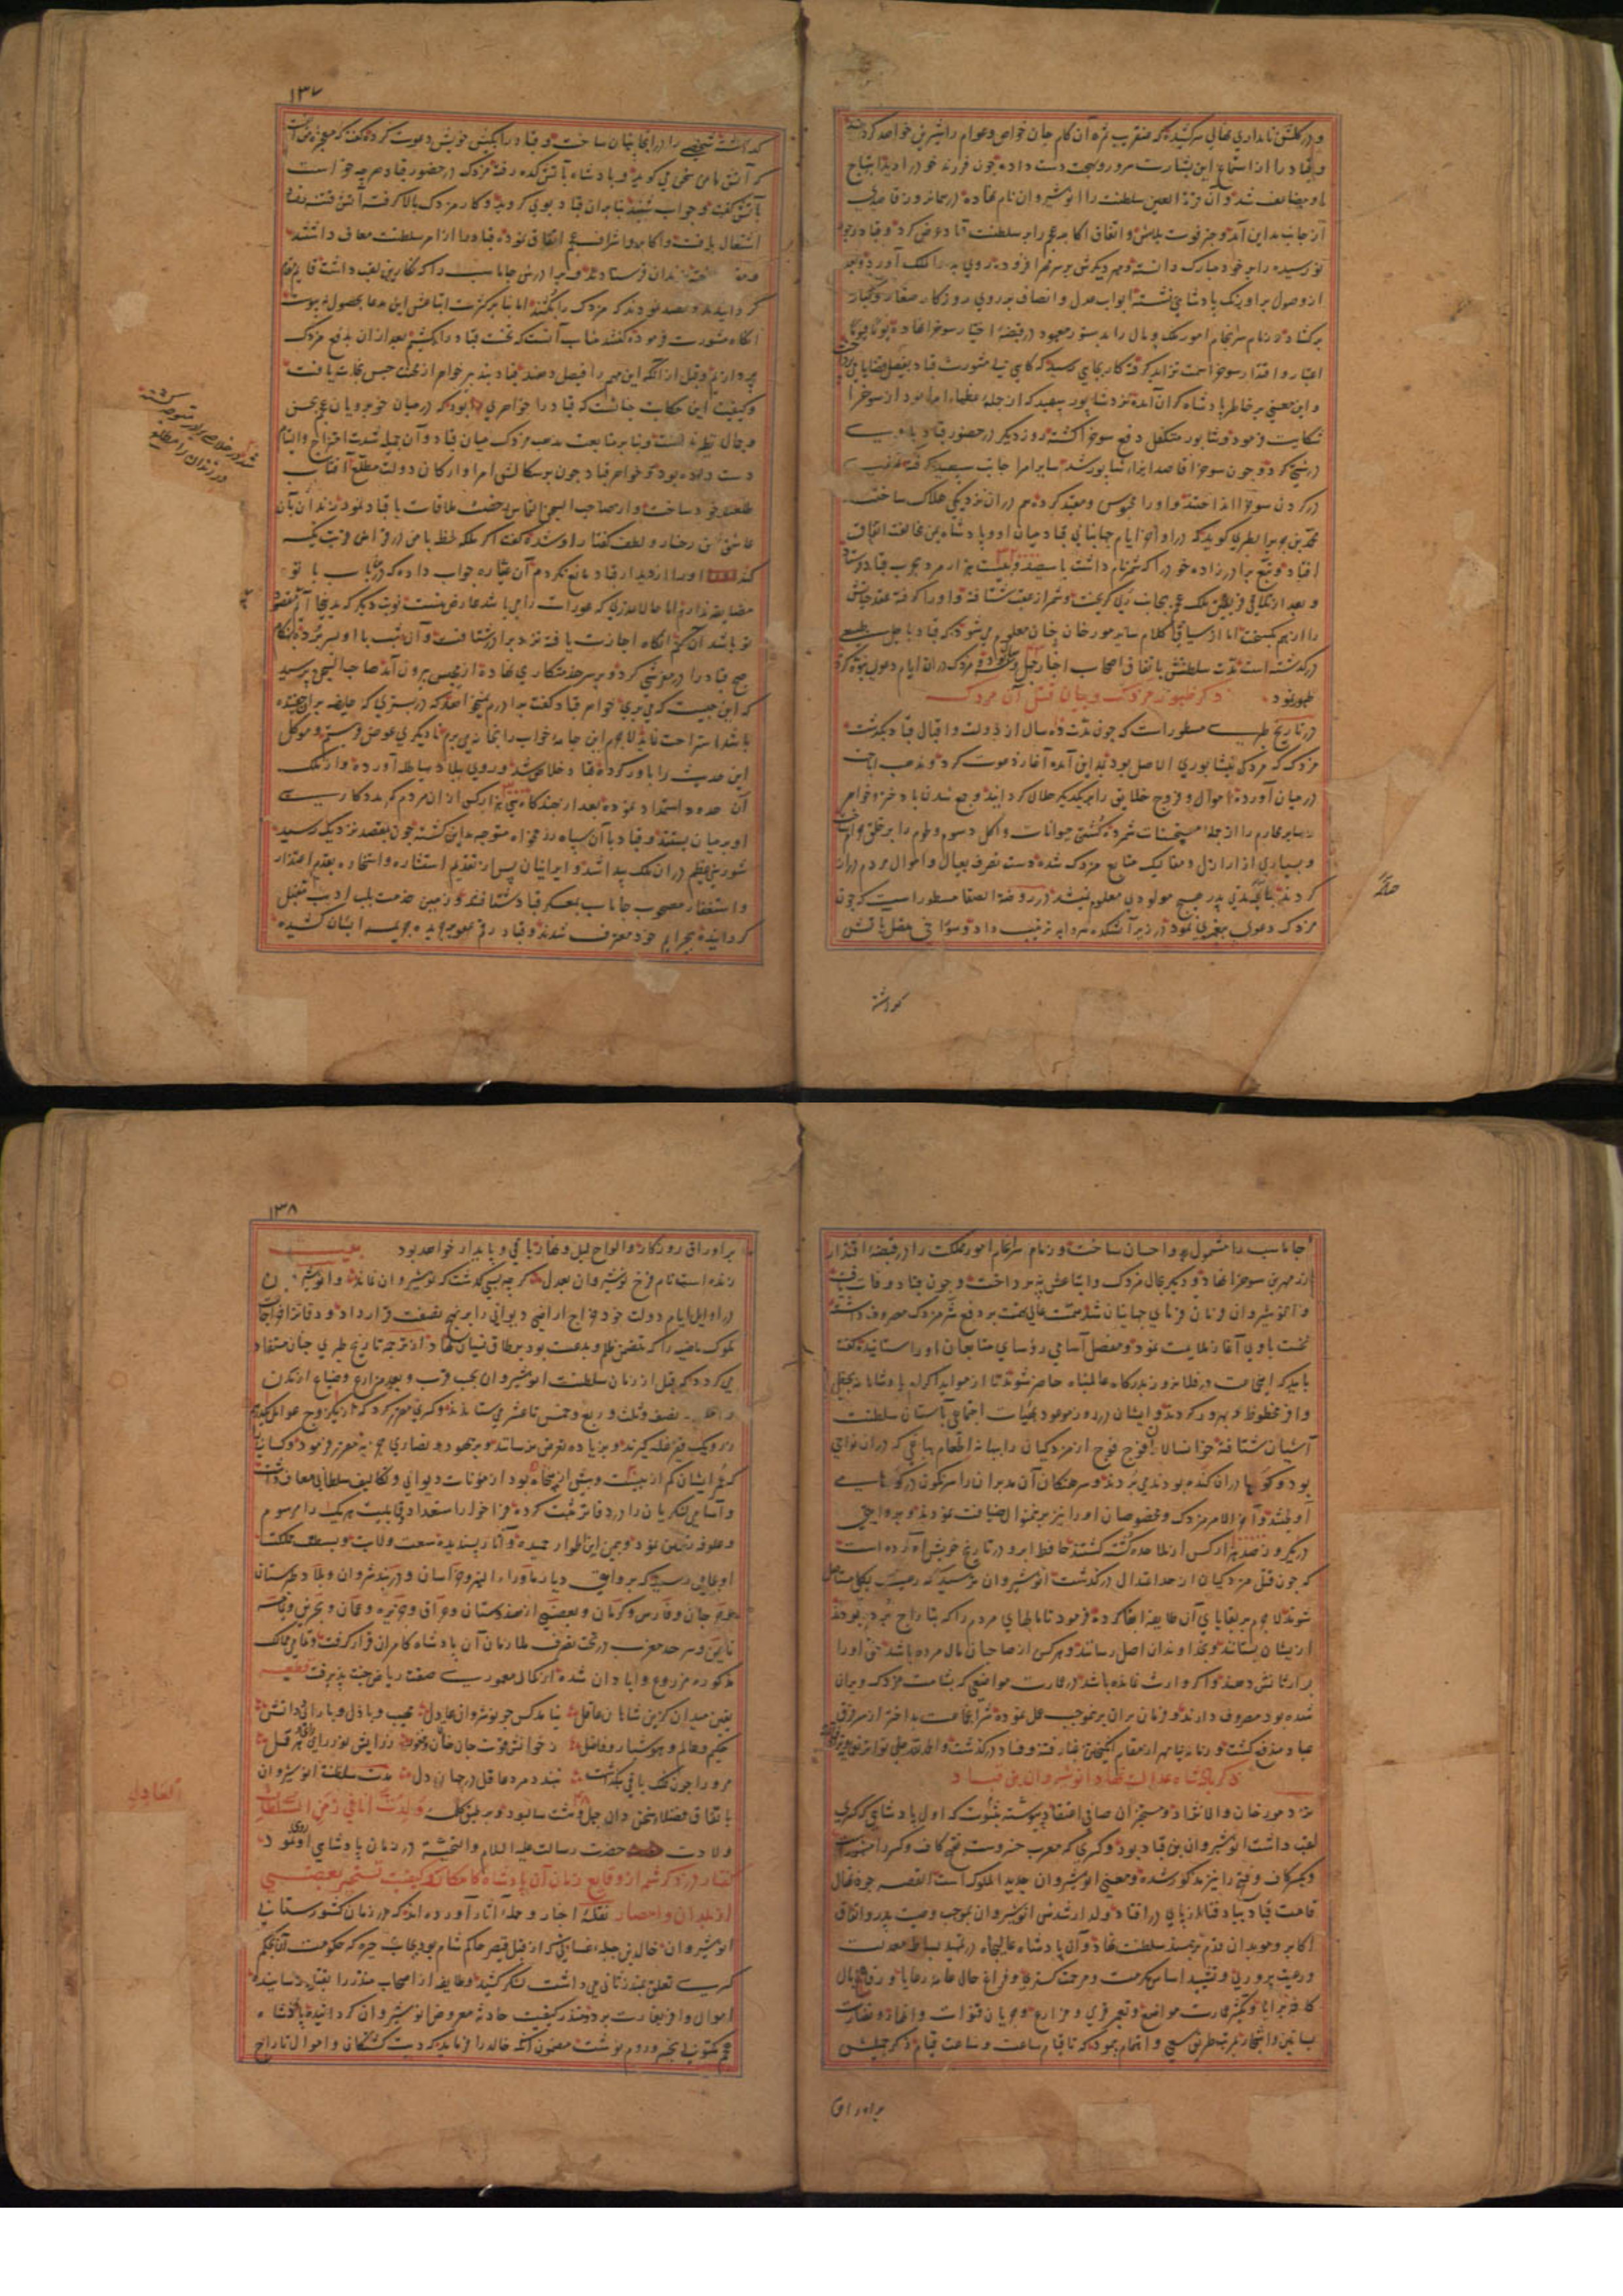 در گلشن نامداری نهالی سرکشیده که عنقریب ثمره آن کام جان خواص و عوام را شیرین خواهد کرد
و قباد را از استماع این بشارت سرور و بهجت دست داده چون فرزند خود را دید ابتهاج
او مضاعف شد و آن قرة العین سلطنت را انوشیروان نام نهاده در همانروز قاصدی
از جانب مداین آمد و خبر فوت بلاش و اتفاق اکابر عجم را بر سلطنت قباد عرض کرد و قباد
نو رسیده را بر خود مبارک دانسته و مهر دیگرش بر سر مهر افزوده روی براه ملک آورد و بعد
از وصول بر اورنگ پادشاهی نشسته ابواب عدل و انصاف بر روی روزگار صغار و کبار
برگشاد و زمام سرانجام امور ملک و مال را بدستور معهود در قبضه اختیار سوخرا نهاده یوما فیوما
اعتبار و اقتدار سوخرا سمت تزاید گرفته کار بجای رسید که گاهی بی مشورت قباد بفیصل قضایا
و این معنی بر خاطر پادشاه گران آمده نزد شاپور سپهبد که از جمله عظماء امرا بود از سوخرا
شکایت فرمود و شاپور متکفل دفع سوخرا گشته روز دیگر در حضور قباد با وی
درشتی کرد و چون سوخرا قاصد ایذاء شاپور شد سایر امرا جانب سپهبد گرفته
در گردن سوخرا انداختند و او را محبوس و مقید کرده هم در آن نزدیکی هلاک ساختند
محمد بن جریر الطبری گوید که در اواخر ایام جهانبانی قباد میان او و پادشاه یمن مخالفت اتفاق
افتاد و تبع برادرزاده خود را که شمر نام داشت با سیصد و بیست هزار مرد بحرب قباد فرستاد
و بعد از تلاقی فریقین ملک عجم بجانب ری گریخت و شمر از عقب شتافته و او را گرفته عقد حیاتش
را از هم گسیخت اما از سیاق کلام سایر مورخان چنان معلوم می شود که قباد باجل طبیعی
در گذشته است مدت سلطنتش باتفاق اصحاب اخبار چهل و سه سال بوده و مزدک در آن ایام دعوی نبوت کرده
ظهور نمود ذکر ظهور مزدک و بیان قتل آن مردک
در تاریخ طبری مسطور است که چون مدت ده سال از دولت و اقبال قباد بگذشت
مزدک که مردکی نیشابوری الاصل بود بمداین آمده آغاز دعوت کرد و مذهب اباحت
در میان آورده اموال و فروج خلایق را بر یکدیگر حلال گردانید و جمع شدن با دختر و خواهر
و سایر محارم را از جمله مستحسنات شمرده کشتن حیوانات و اکل دسوم و لحوم را بر خلق حرام ساخت
و بسیاری از اراذل و صعالیک متابع مزدک شده دست تصرف بعیال و اموال مردم دراز
کردند چنانچه مدتی پدر هیچ مولودی معلوم نمیشد در روضة الصفا مسطور است که چون
مزدک دعوی پیغمبری نمود در زیر آتشکده سردابه ترتیب داد و سوراخی متصل بآتش
گذاشته
گذاشته شخصی را در آنجا پنهان ساخت و قباد را بکیش خویش دعوت کرده گفت که معجزه من آنست
که آتش با من سخن می گوید و پادشاه بآتشکده رفته مزدک در حضور قباد هر چه خواست
بآتش گفت و جواب شنید بنابران قباد بوی گروید و کار مزدک بالا گرفت آتش فتنه
اشتعال یافت و اکابر و اشراف عجم اتفاق نموده قباد را از امر سلطنت معاف داشتند
زندان فرستادند و برادرش جاماسب را که نگارین لقب داشت قایم مقام
گردانیدند و قصد نمودند که مزدک را بکشند اما بنابر کثرت اتباعش این مدعا بحصول نپیوست
آنگاه مشورت فرموده گفتند مناسب آنست که نخست قباد را بکشیم بعد ازان بدفع مزدک
پردازیم و قبل از آنکه این مهم را فیصل دهند قباد بتدبیر خواهر از محنت حبس نجات یافت
و کیفیت این حکایت چنانست که قباد را خواهری بود که در میان خوبرویان عجم بحسن
و جمال نظیر نداشت و بنابر متابعت مذهب مزدک میان قباد و آن جمیله شدت امتزاج و التیام
دست داده بود و خواهر قباد چون بر سکالش امرا و ارکان دولت مطلع آفتاب
طلعت خود ساخت و از صاحب السجن التماس رخصت ملاقات با قباد نمود زندانبان
عاشق حسن رخسار و لطف گفتار او شده گفت اگر ملکه لحظه با من در فراش قربت تکیه
کند او را از دیدار قباد مانع نگردم آن عیاره جواب داد که در این باب با تو
مضایقه ندارم اما حالا عذری که عورات را می باشد عارض منست نوبت دیگر که بدینجا آیم مقصود
تو باشد آن کنم آنگاه اجازت یافته نزد برادر شتافت و آن شب با او بسر برده هنگام
صبح قباد را در مفرشی کرد و بر سر خدمتکاری نهاده از محبس بیرون آمد صاحب السجن پرسید
که این چیست که می بری خواهر قباد گفت برادرم میخواهد که در بستری که حایضه بران خفته
باشد استراحت نماید لاجرم این جامه خواب را بخانه می برم تا دیگری عوض فرستم و موکل
این حدیث را باور کرده قباد خلاص شد و روی ببلاد هیاطله آورده و از ملک
آن حدود استمداد نموده بعد از چندگاه سی هزار کس از ان مردم کمر مددکاری
او بر میان بستند و قباد با آن سپاه رزمخواه متوجه مداین گشته چون بمقصد نزدیک رسید
شورش عظیم در ان ملک پیدا شد و ایرانیان پس از تقدیم استشاره و استخاره بقدم اعتذار
و استغفار مصحوب جاماسب بمعسکر قباد شتافتند و زمین خدمت بلب ادب مقبل
گردانیده بجرایم خود معترف شدند و قباد رقم عفو بر جریده جریمه ایشان کشیده
جاماسب را مشمول بر و احسان ساخت و زمام سرانجام امور مملکت را در قبضه اقتدار
زرمهر بن سوخرا نهاد و دیگر بحال مزدک و اتباعش نپرداخت و چون قباد وفات یافت
و انوشیروان فرمان فرمای جهانیان شد همت عالی نهمت بر دفع شر مزدک مصروف داشته
نخست باوی آغاز ملایمت نمود و مفصل اسامی رؤسای متابعان او را ستانیده گفت
باید که این جماعت در فلان روز بدرگاه عالم پناه حاضر شوند تا از مواید اکرام پادشاهانه
وافر محظوظ و بهره ور گردند و ایشان در روز موعود بهیات اجتماعی بآستان سلطنت
آشیان شتافته خوانسالاران فوج فوج از مزدکیان را ببهانه اطعام بباغی که در ان نواحی
بود و گوها در ان کنده بودند می بردند و سرهنگان آن مدبران را سرنگون در گو
و آخر الامر مزدک و مخصوصان او را نیز برین منوال ضیافت نمودند و بروایتی
در یک روز صد هزار کس از ملاحده کشته گشتند حافظ ابرو در تاریخ خویش آورده است
که چون قتل مزدکیان از حد اعتدال در گذشت انوشیروان ترسید که رعیت بکلی مستاصل
شوند لاجرم بر بقایای آن طایفه ابقا کرده فرمود تا مالهای مردم را که بتاراج برده بودند
از ایشان بستانند و بخداوندان اصل رسانند و هر کس از صاحبان مال مرده باشد حق او را
بوارثانش دهند و اگر وارث نمانده باشد در عمارت مواضعی که بشامت مزدک ویران
شده بود مصروف دارند و فرمان بران بر موجب عمل نموده شر آن جماعت بد اختر از مفرق
عباد مندفع گشت و زمانه ناهموار از مقام انگیختن غبار فتنه و فساد در گذشت
ذکر پادشاه عدالت نهاد انوشیروان بن قباد
نزد مورخان والانژاد و مستخبران صافی اعتقاد پیوسته بثبوت که اول پادشاهی که کسری
لقب داشت انوشیروان بن قباد بود و کسری که معرب خسرو ست بفتح کاف و کسر را
و بکسر کاف و فتح را نیز مذکور شده و معنی انوشیروان جدید الملوک است القصه چون نهال
قامت قباد بباد فنا از پای در افتاد ولد ارشدش انوشیروان بموجب وصیت پدر و اتفاق
اکابر و موبدان قدم بر مسند سلطنت نهاد و آن پادشاه عالیجاه در تمهید بساط معدلت
و رعیت پروری و تشیید اساس مکرمت و مرحمت گستری و فراغ حال عامه رعایا و رفاه بال
کافه برایا و تکثیر عمارت مواضع و تعمیر قری و مزارع و جریان قنوات و انهار و نضارت
بساتین و اشجار بمرتبه طریق سعی و اهتمام پیمود که تا قیام ساعت و ساعت قیام ذکر جمیلش
بر اوراق
بر اوراق روزگار و الواح لیل و نهار باقی و پایدار خواهد بود بیت
زنده است نام فرخ نوشیروان بعدل گرچه بسی گذشت که نوشیروان نماند و انوشیروان
در اوایل ایام دولت خود خراج اراضی دیوانی را بر نهج نصفت قرار داد و دفاتر اخراجات
ملوک ماضیه را که متضمن ظلم و بدعت بود بر طاق نسیان نهاد و از ترجمه تاریخ طبری چنان مستفاد
می گردد که قبل از زمان سلطنت انوشیروان بحسب قرب و بعد مزارع و ضیاع از تمدن
نصف و ثلث و ربع و خمس تا عشر می ستانیدند و کسری مقرر کرد که
یک قفیز غله گیرند و بزیاده تعرض نرسانند و بر یهود و نصاری جزیه مقرر فرمود و کسانی
که عمر ایشان کم از بیست و بیش از پنجاه بود از مؤنات دیوانی و تکالیف سلطانی معاف داشت
و اسامی لشکریان را در دفاتر ثبت کرده فراخور استعداد و قابلیت هر یک را مرسوم
و علوفه تعیین نمود و بیمن این اطوار حمیده و آثار پسندیده سعت ولایت و بسطت مملکت
او بجایی رسید که بروایتی دیار ماوراء النهر و خراسان و دربند شروان و بلاد طبرستان
و جرجان و فارس و کرمان و بعضی از هندوستان و عراق و جزیره و عمان و بحرین و یمامه
تا یمن و سرحد مغرب در تحت تصرف ملازمان آن پادشاه کامران قرار گرفت و تمامی ممالک
مذکوره مزروع و آبادان شده از کمال معموری صفت ریاض جنت پذیرفت قطعه
یقین میدان کزین شاهان عاقل نیامد کس چو نوشروان عادل مجیب و باذل و با رای و دانش
حکیم و عالم و هوشیار و فاضل
مرو را چون فلک باقی نگذاشت نبندد مرد عاقل در جهان دل مدت سلطنت انوشیروان
باتفاق فضلاء سخن دان چهل و هشت سال بود و بر طبق کلمه ولدت انا فی زمن السلطان العادل
ولادت حضرت رسالت علیه السلام والتحیة در زمان پادشاهی او روی نمود
گفتار در ذکر شمه از وقایع زمان آن پادشاه کامکار و کیفیت تسخیر بعضی
از بلدان و امصار نقله اخبار و حمله آثار آورده اند که در زمان کشورستانی
انوشیروان خالد بن جبله غسانی که از قبل قیصر حاکم شام بود بجانب حیره که حکومت آنجا بحکم
کسری تعلق بمنذر ثانی می داشت لشکر کشید و طایفه از اصحاب منذر را بقتل رسانیده
اموال وافر بغارت برد و منذر کیفیت حادثه معروض انوشیروان گردانیده پادشاه
عجم مکتوبی بقیصر روم نوشت مضمون آنکه خالد را فرماید که دیت کشتگان و اموال تاراج
۱۳۷
۱۳۸